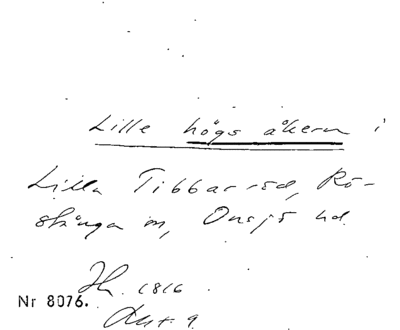 Lille högs åkern i
Lilla Tibbaröd, Rö-
stånga sn, Onsjö hd.
Nr 8076.
1816
Akt 9.